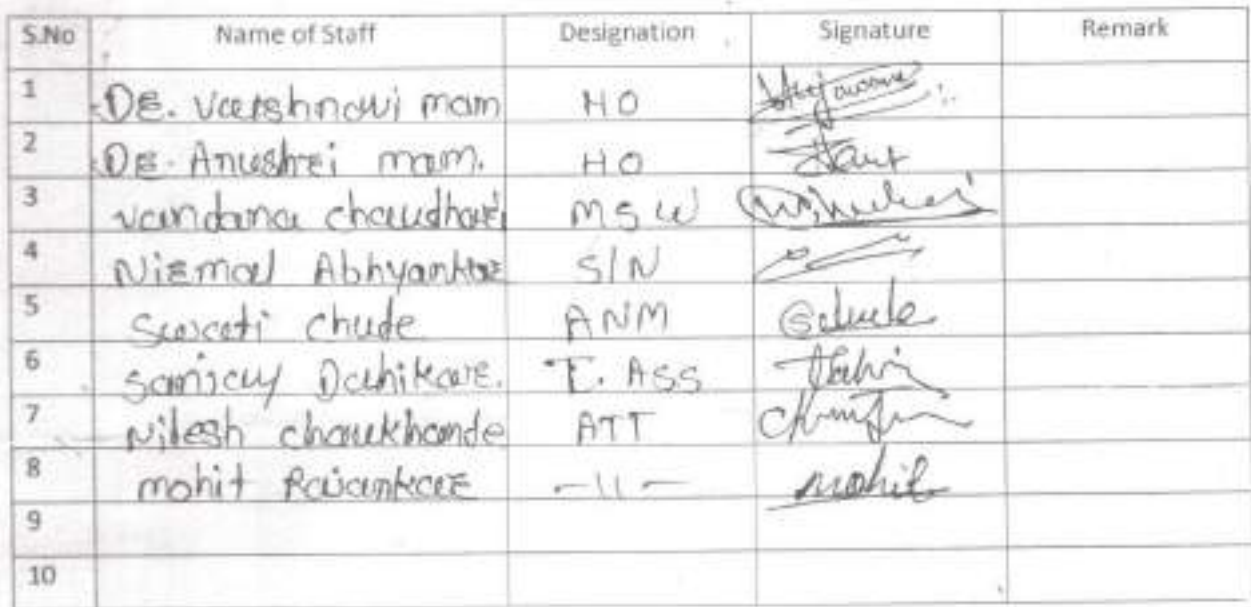 S.No Name of Staff Designation Signature Remark
1 DR. Varshnavi mam HO
2 DR. Anushri mam. HO
3 vandana chaudhari MSW
4 Nirmal Abhyankar S/N
5 Swati Chude ANM
6 Sanjay Dahikar. T. ASS
7 Nilesh chaukhande ATT
8 mohit Raiankar -11- mohit
9
10